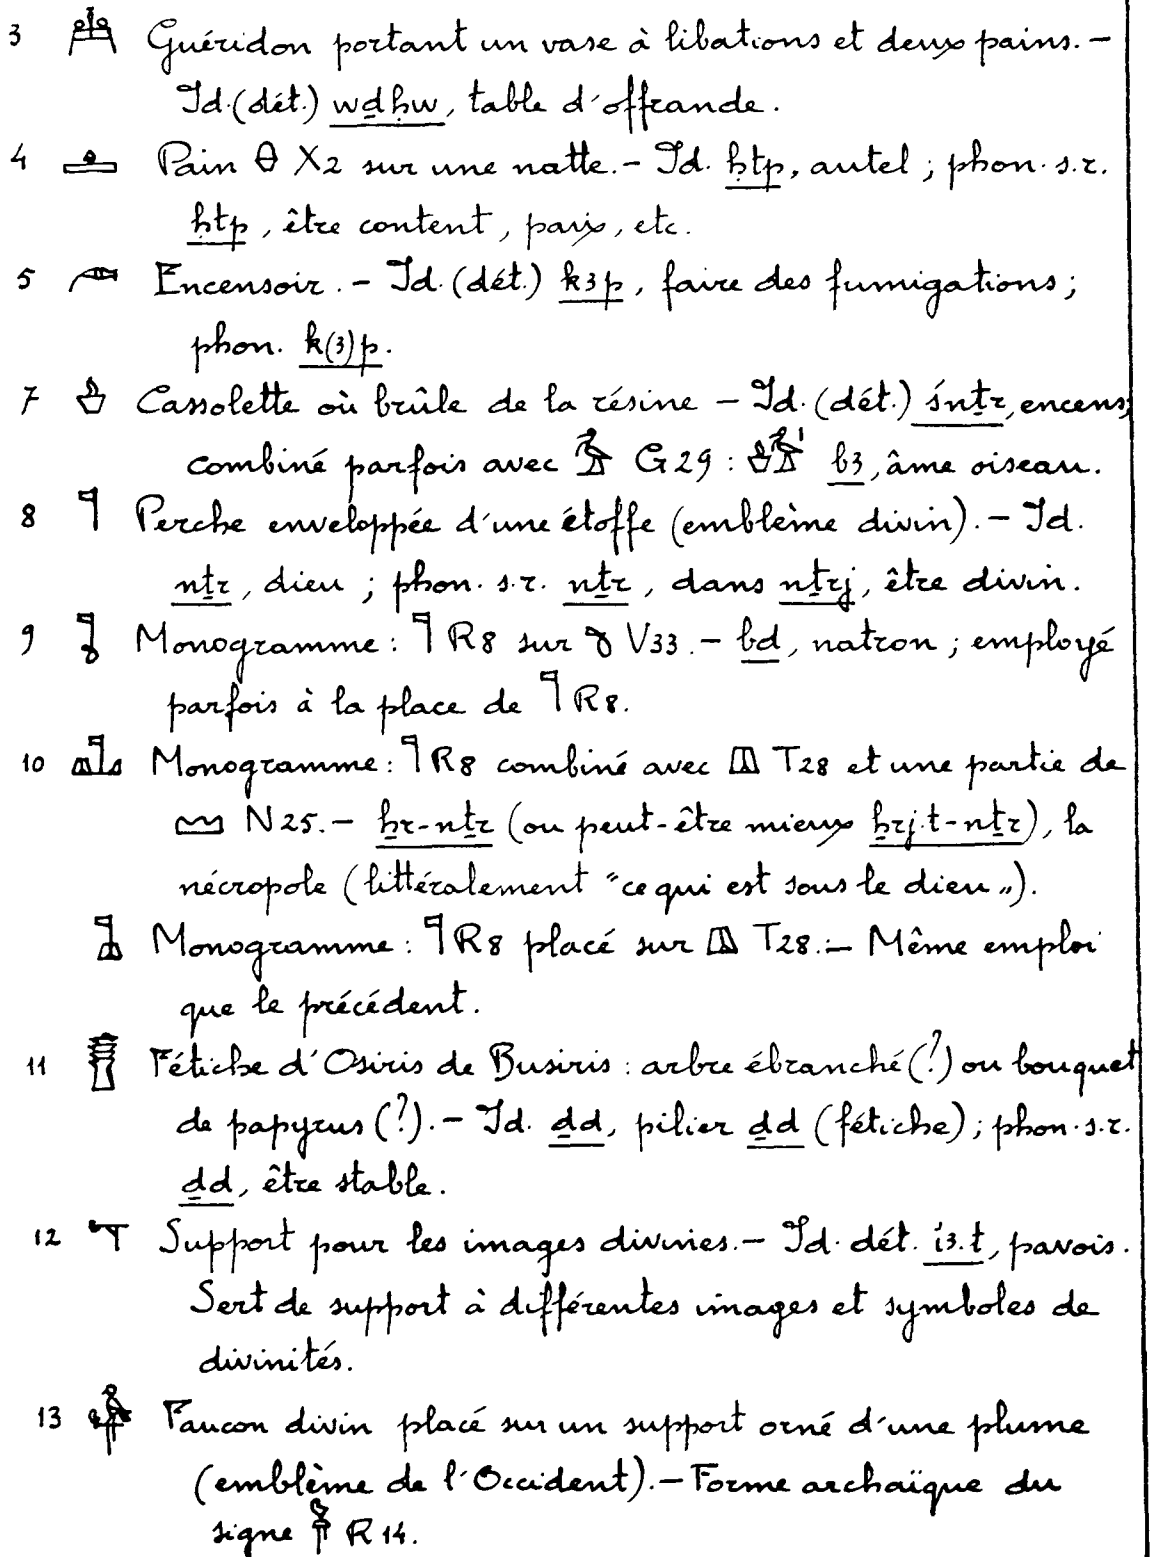 3 𓊱 Guéridon portant un vase à libations et deux pains. –
Id. (dét.) wdḥw, table d'offrande.
4 𓊵 Pain 𓏐 X2 sur une natte. – Id. ḥtp, autel ; phon. s.r.
ḥtp, être content, paix, etc.
5 𓊶 Encensoir. – Id. (dét.) k3p, faire des fumigations ;
phon. k(3)p.
7 𓊸 Cassolette où brûle de la résine – Id. (dét.) śnṯr, encens;
combiné parfois avec 𓅡 G29 : 𓊸𓅡𓏤 b3, âme oiseau.
8 𓊹 Perche enveloppée d'une étoffe (emblème divin). – Id.
nṯr, dieu ; phon. s.r. nṯr, dans nṯrj, être divin.
9 𓊼 Monogramme : 𓊹 R8 sur 𓎤 V33. – bd, natron ; employé
parfois à la place de 𓊹 R8.
10 𓊽 Monogramme : 𓊹 R8 combiné avec 𓌨 T28 et une partie de
𓈉 N25. – ẖr-nṯr (ou peut-être mieux ẖrj.t-nṯr), la
nécropole (littéralement "ce qui est sous le dieu„).
Monogramme : 𓊹 R8 placé sur 𓌨 T28. – Même emploi
que le précédent.
11 𓊽 Fétiche d'Osiris de Busiris : arbre ébranché (?) ou bouquet
de papyrus (?). – Id. ḏd, pilier ḏd (fétiche) ; phon. s.r.
ḏd, être stable.
12 𓊾 Support pour les images divines. – Id. dét. i3.t, pavois.
Sert de support à différentes images et symboles de
divinités.
13 𓊿 Faucon divin placé sur un support orné d'une plume
(emblème de l'Occident). – Forme archaïque du
signe 𓋀 R14.